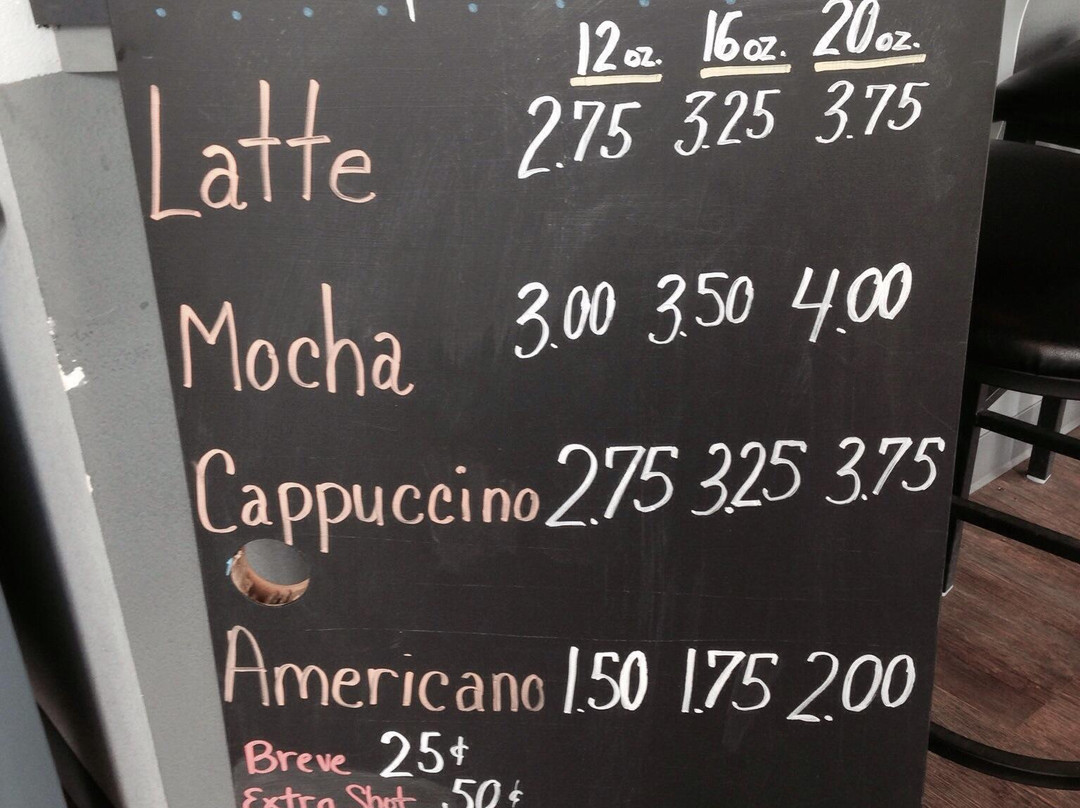 12 oz. 16 oz. 20 oz.
Latte 2.75 3.25 3.75
Mocha 3.00 3.50 4.00
Cappuccino 2.75 3.25 3.75
Americano 1.50 1.75 2.00
Breve 25¢
Extra Shot .50¢